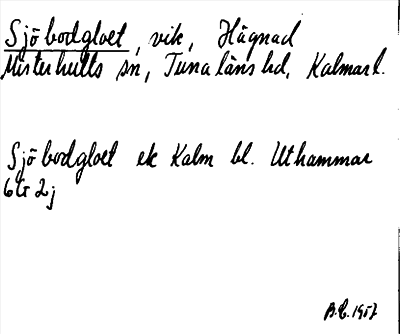 Sjöbodgloet, vik, Hägnad
Misterhults sn, Tunaläns hd, Kalmar l.
Sjöbodgloet ek Kalm bl. Uthammar
6G 2j
B.E. 1957